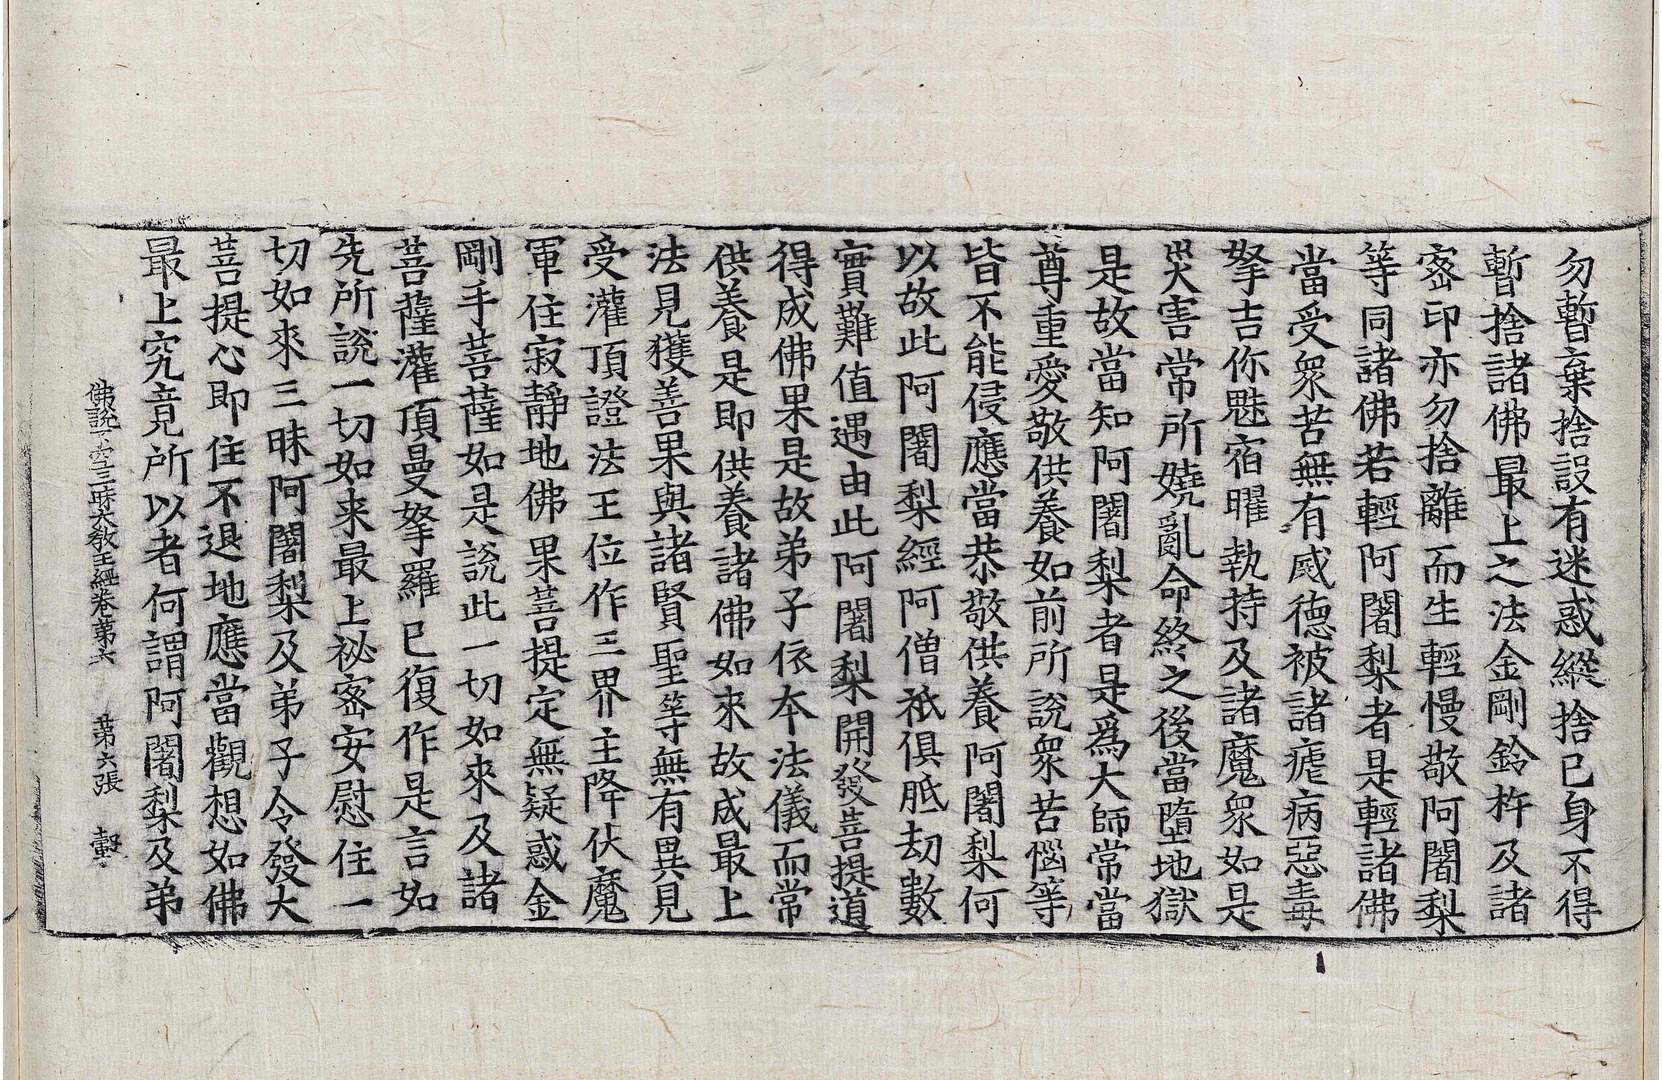 勿暫棄捨設有迷惑縱捨已身不得
暫捨諸佛最上之法金剛鈴杵及諸
宻印亦勿捨離而生輕慢敬阿闍梨
等同諸佛若輕阿闍梨者是輕諸佛
當受衆苦無有威德被諸瘧病惡毒
拏吉你魅宿曜執持及諸魔衆如是
災害常所嬈亂命終之後當墮地獄
是故當知阿闍梨者是爲大師常當
尊重愛敬供養如前所說衆苦惱等
皆不能侵應當恭敬供養阿闍梨何
以故此阿闍梨經阿僧祇俱胝劫數
實難值遇由此阿闍梨開發菩提道
得成佛果是故弟子依本法儀而常
供養是即供養諸佛如來故成最上
法見獲善果與諸賢聖等無有異見
受灌頂證法王位作三界主降伏魔
軍住寂靜地佛果菩提定無疑惑金
剛手菩薩如是說此一切如來及諸
菩薩灌頂曼拏羅已復作是言如
先所說一切如来最上祕宻安慰住一
切如來三昧阿闍梨及弟子令發大
菩提心即住不退地應當觀想如佛
最上究竟所以者何謂阿闍梨及弟
佛說不空三昧大教王經卷第六 第六張 轂